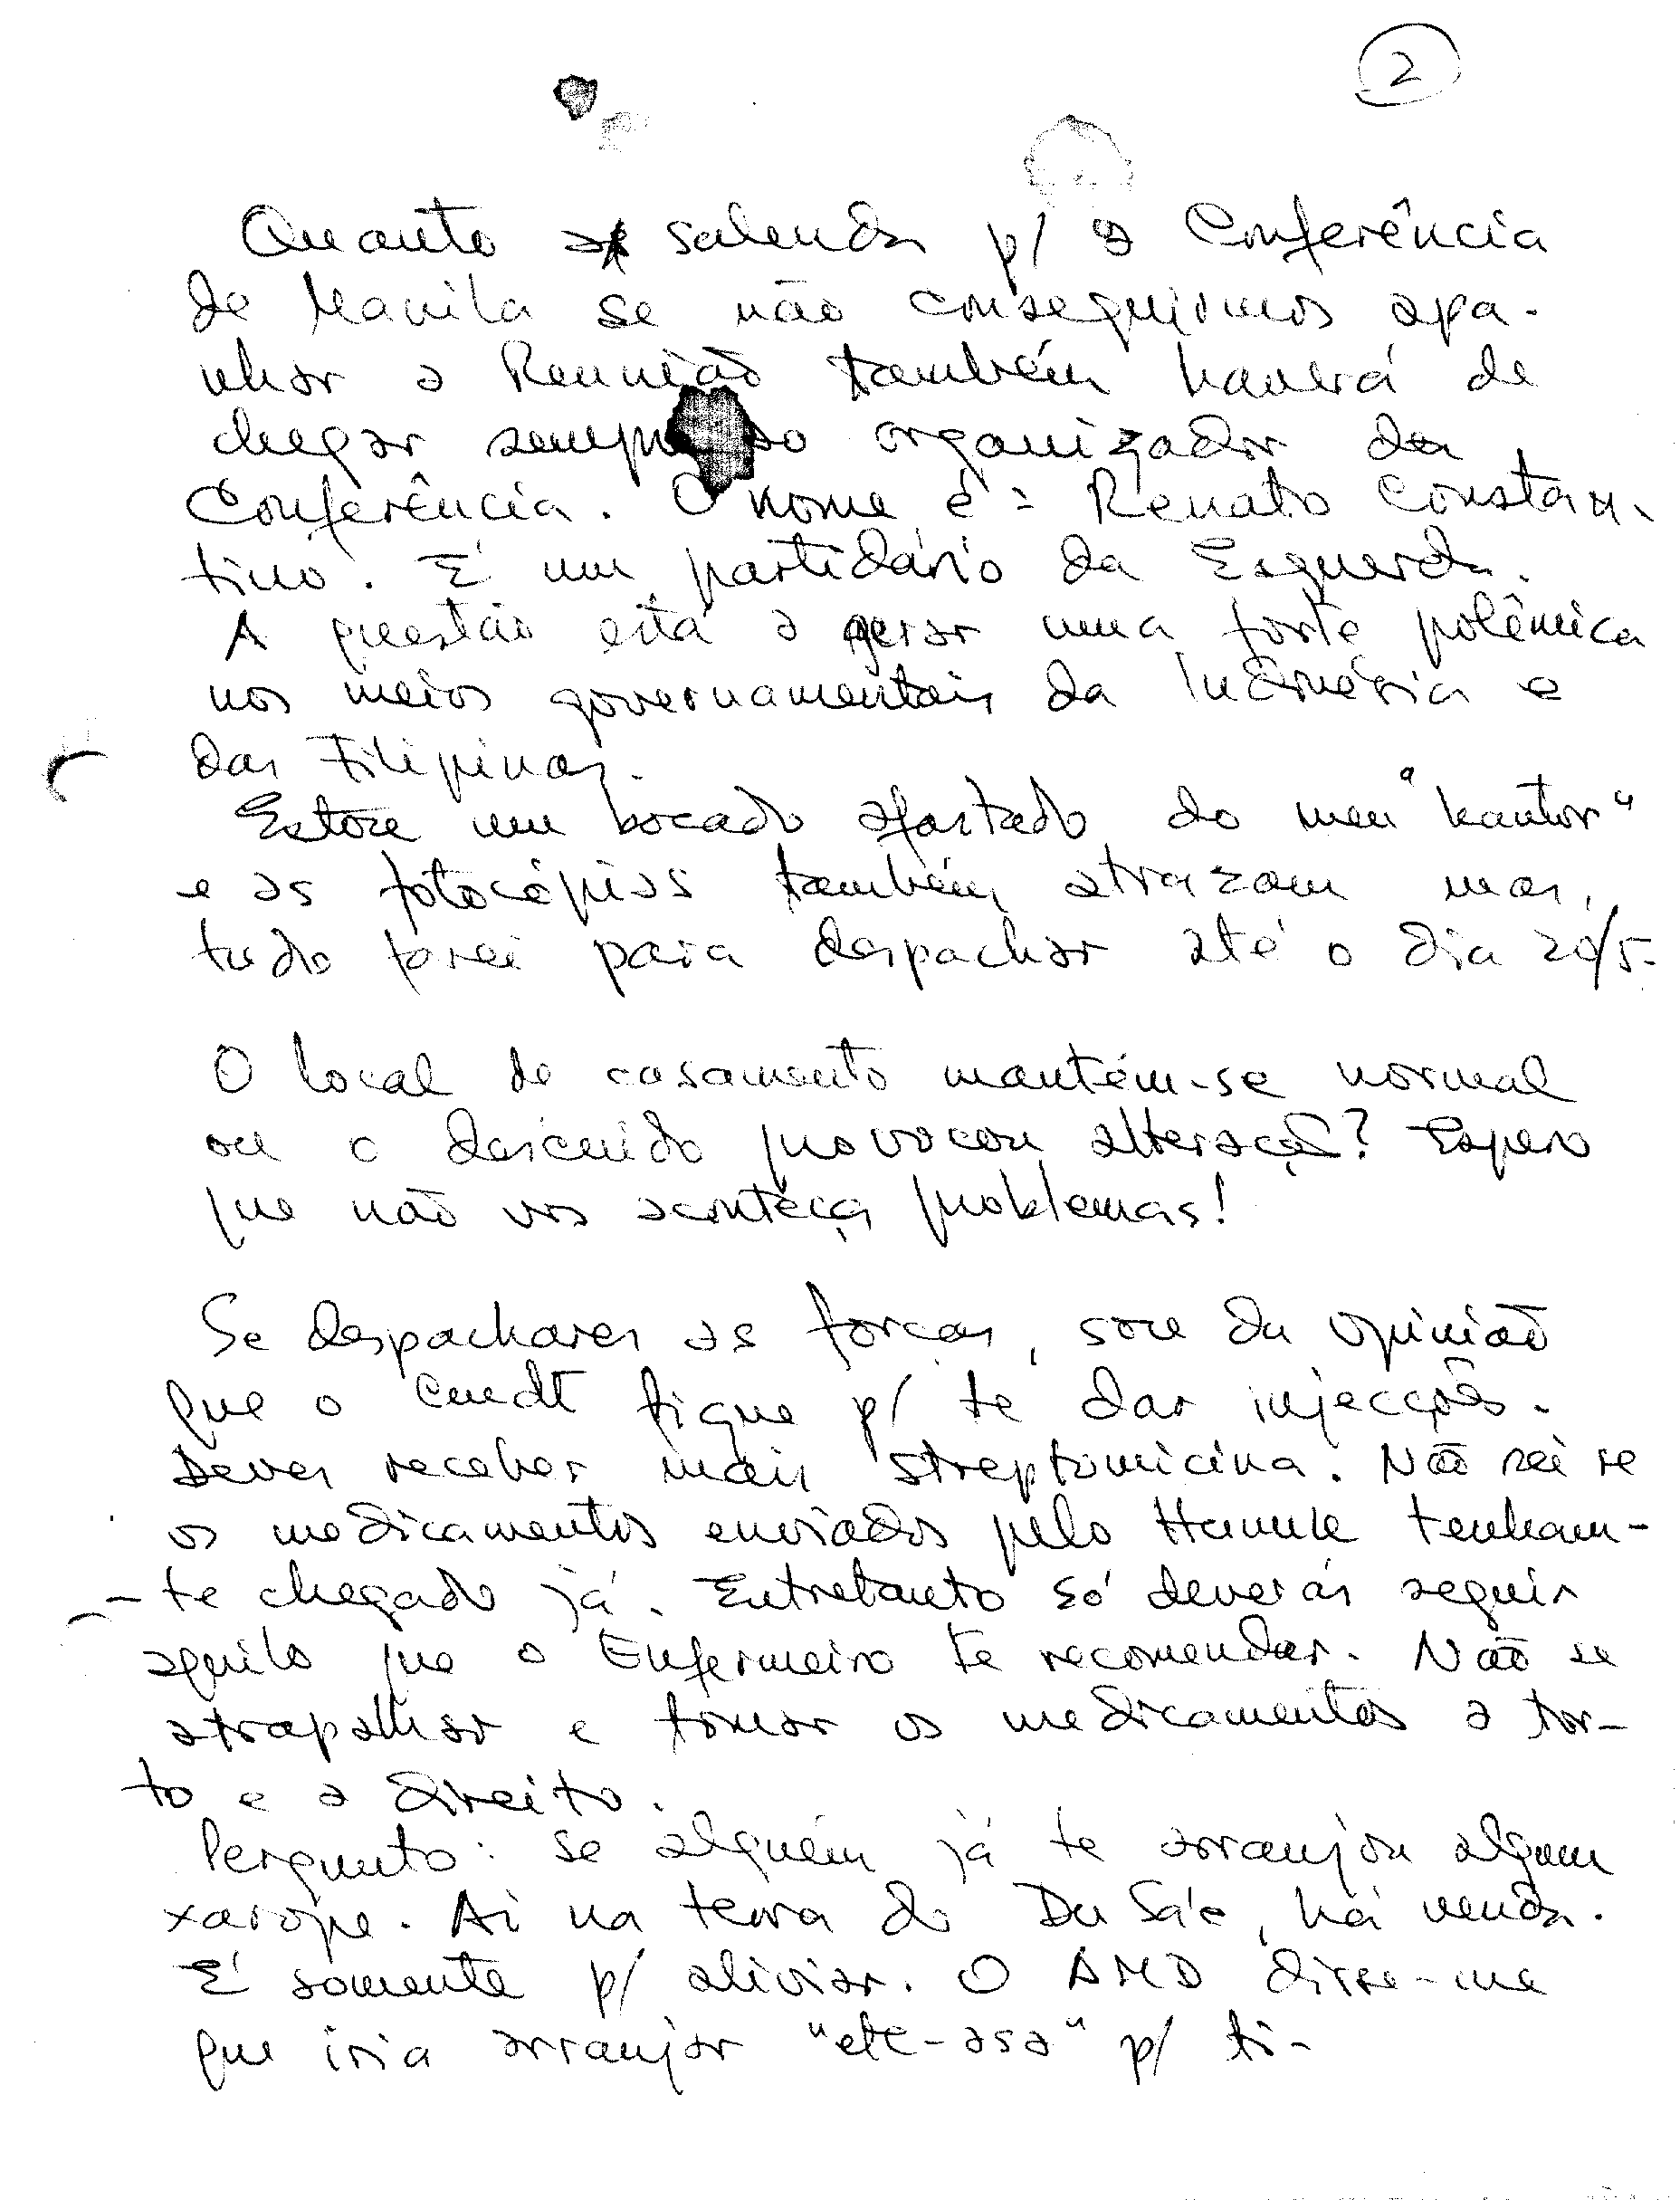 2
Quanto a saúda p/ a Conferência
de Manila se não conseguirmos apa-
nhar a Reunião também haverá de
chegar sempre ao organizador da
Conferência. O nome é = Renato Constan-
tino. É um partidário da Esquerda.
A questão está a gerar uma forte polémica
nos meios governamentais da Indonésia e
das Filipinas.
Estou um bocado afastado do meu "kantor"
e as fotocópias também atrazam mas,
tudo farei para despachar até o dia 20/5-
O local de casamento mantém-se normal
ou o descuido provocou alteração? Espero
que não vos aconteça problemas!
Se despachares as forças, sou da opinião
que o Cmdt fique p/ te dar injecções.
Deves receber mais streptomicina. Não sei se
os medicamentos enviados pelo Hunuk tenham-
-te chegado já. Entretanto só deverás seguir
aquilo que o Enfermeiro te recomendar. Não se
atrapalhar e tomar os medicamentos a tor-
to e a direito.
Pergunto: se alguém já te arranjou algum
xarope. Aí na terra do Du Sá'e, há venda.
É somente p/ aliviar. O AMD disse-me
que iria arranjar "ete-asa" p/ ti-